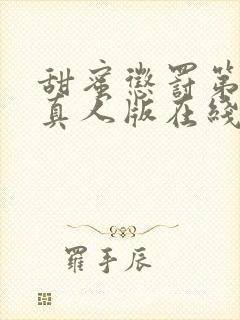 甜蜜懲罰第
真人版在綫
羅手辰